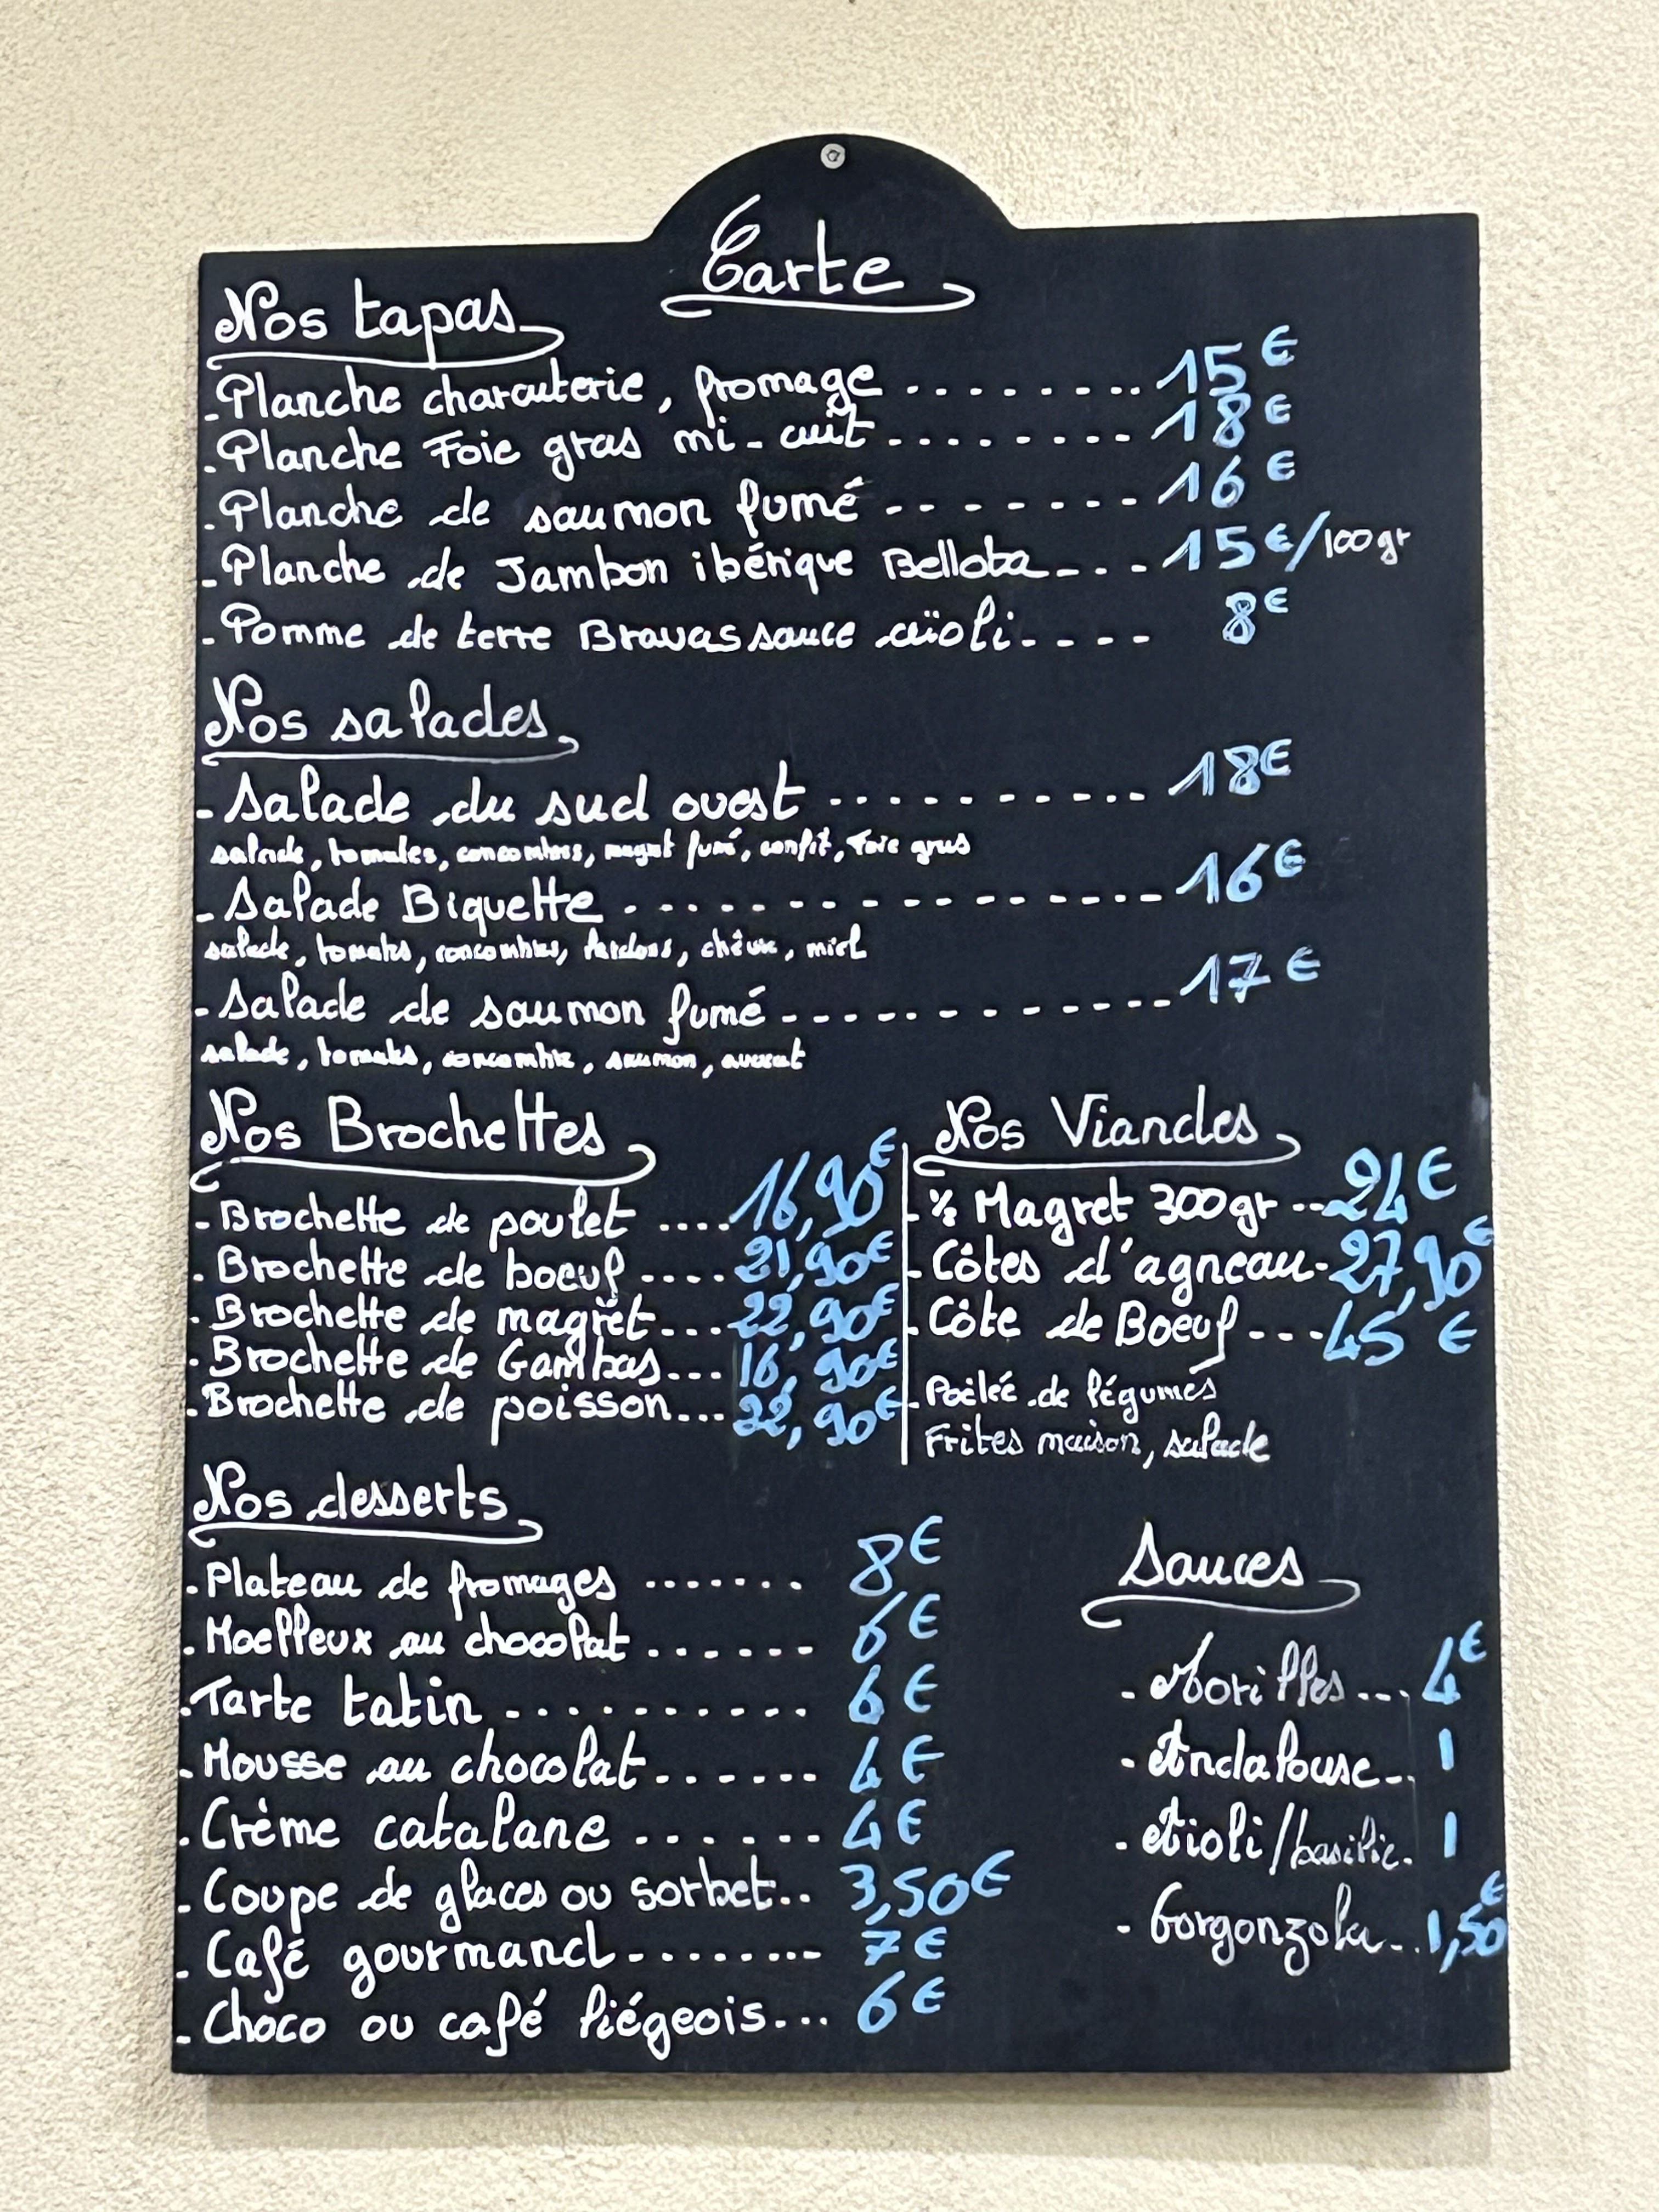 Carte
Nos tapas
- Planche charcuterie, fromage ........ 15€
- Planche Foie gras mi-cuit ........ 18€
- Planche de saumon fumé ....... 16€
- Planche de Jambon ibérique Bellota ... 15€/100gr
- Pomme de terre Bravas sauce aïoli .... 8€
Nos salades
- Salade du sud ouest .......... 18€
salade, tomates, concombres, magret fumé, confit, Foie gras
- Salade Biquette ................ 16€
salade, tomates, concombres, lardons, chèvre, miel
- Salade de saumon fumé ............ 17€
salade, tomates, concombre, saumon, avocat
Nos Brochettes
- Brochette de poulet .... 16,90€
- Brochette de boeuf .... 21,90€
- Brochette de magret ... 22,90€
- Brochette de Gambas ... 16,90€
- Brochette de poisson ... 22,90€
Nos Viandes
- ½ Magret 300gr -- 24€
- Côtes d'agneau - 27,90€
- Côte de Boeuf --- 45€
- Poêlée de légumes
Frites maison, salade
Nos desserts
- Plateau de fromages ....... 8€
- Moelleux au chocolat ...... 6€
- Tarte tatin .......... 6€
- Mousse au chocolat ...... 4€
- Crème catalane ...... 4€
- Coupe de glaces ou sorbet .. 3,50€
- Café gourmand ....... 7€
- Choco ou café liégeois ... 6€
Sauces
- Morilles ... 4€
- Andalouse .. 1
- Aioli/basilic . 1
- Gorgonzola ... 1,50€